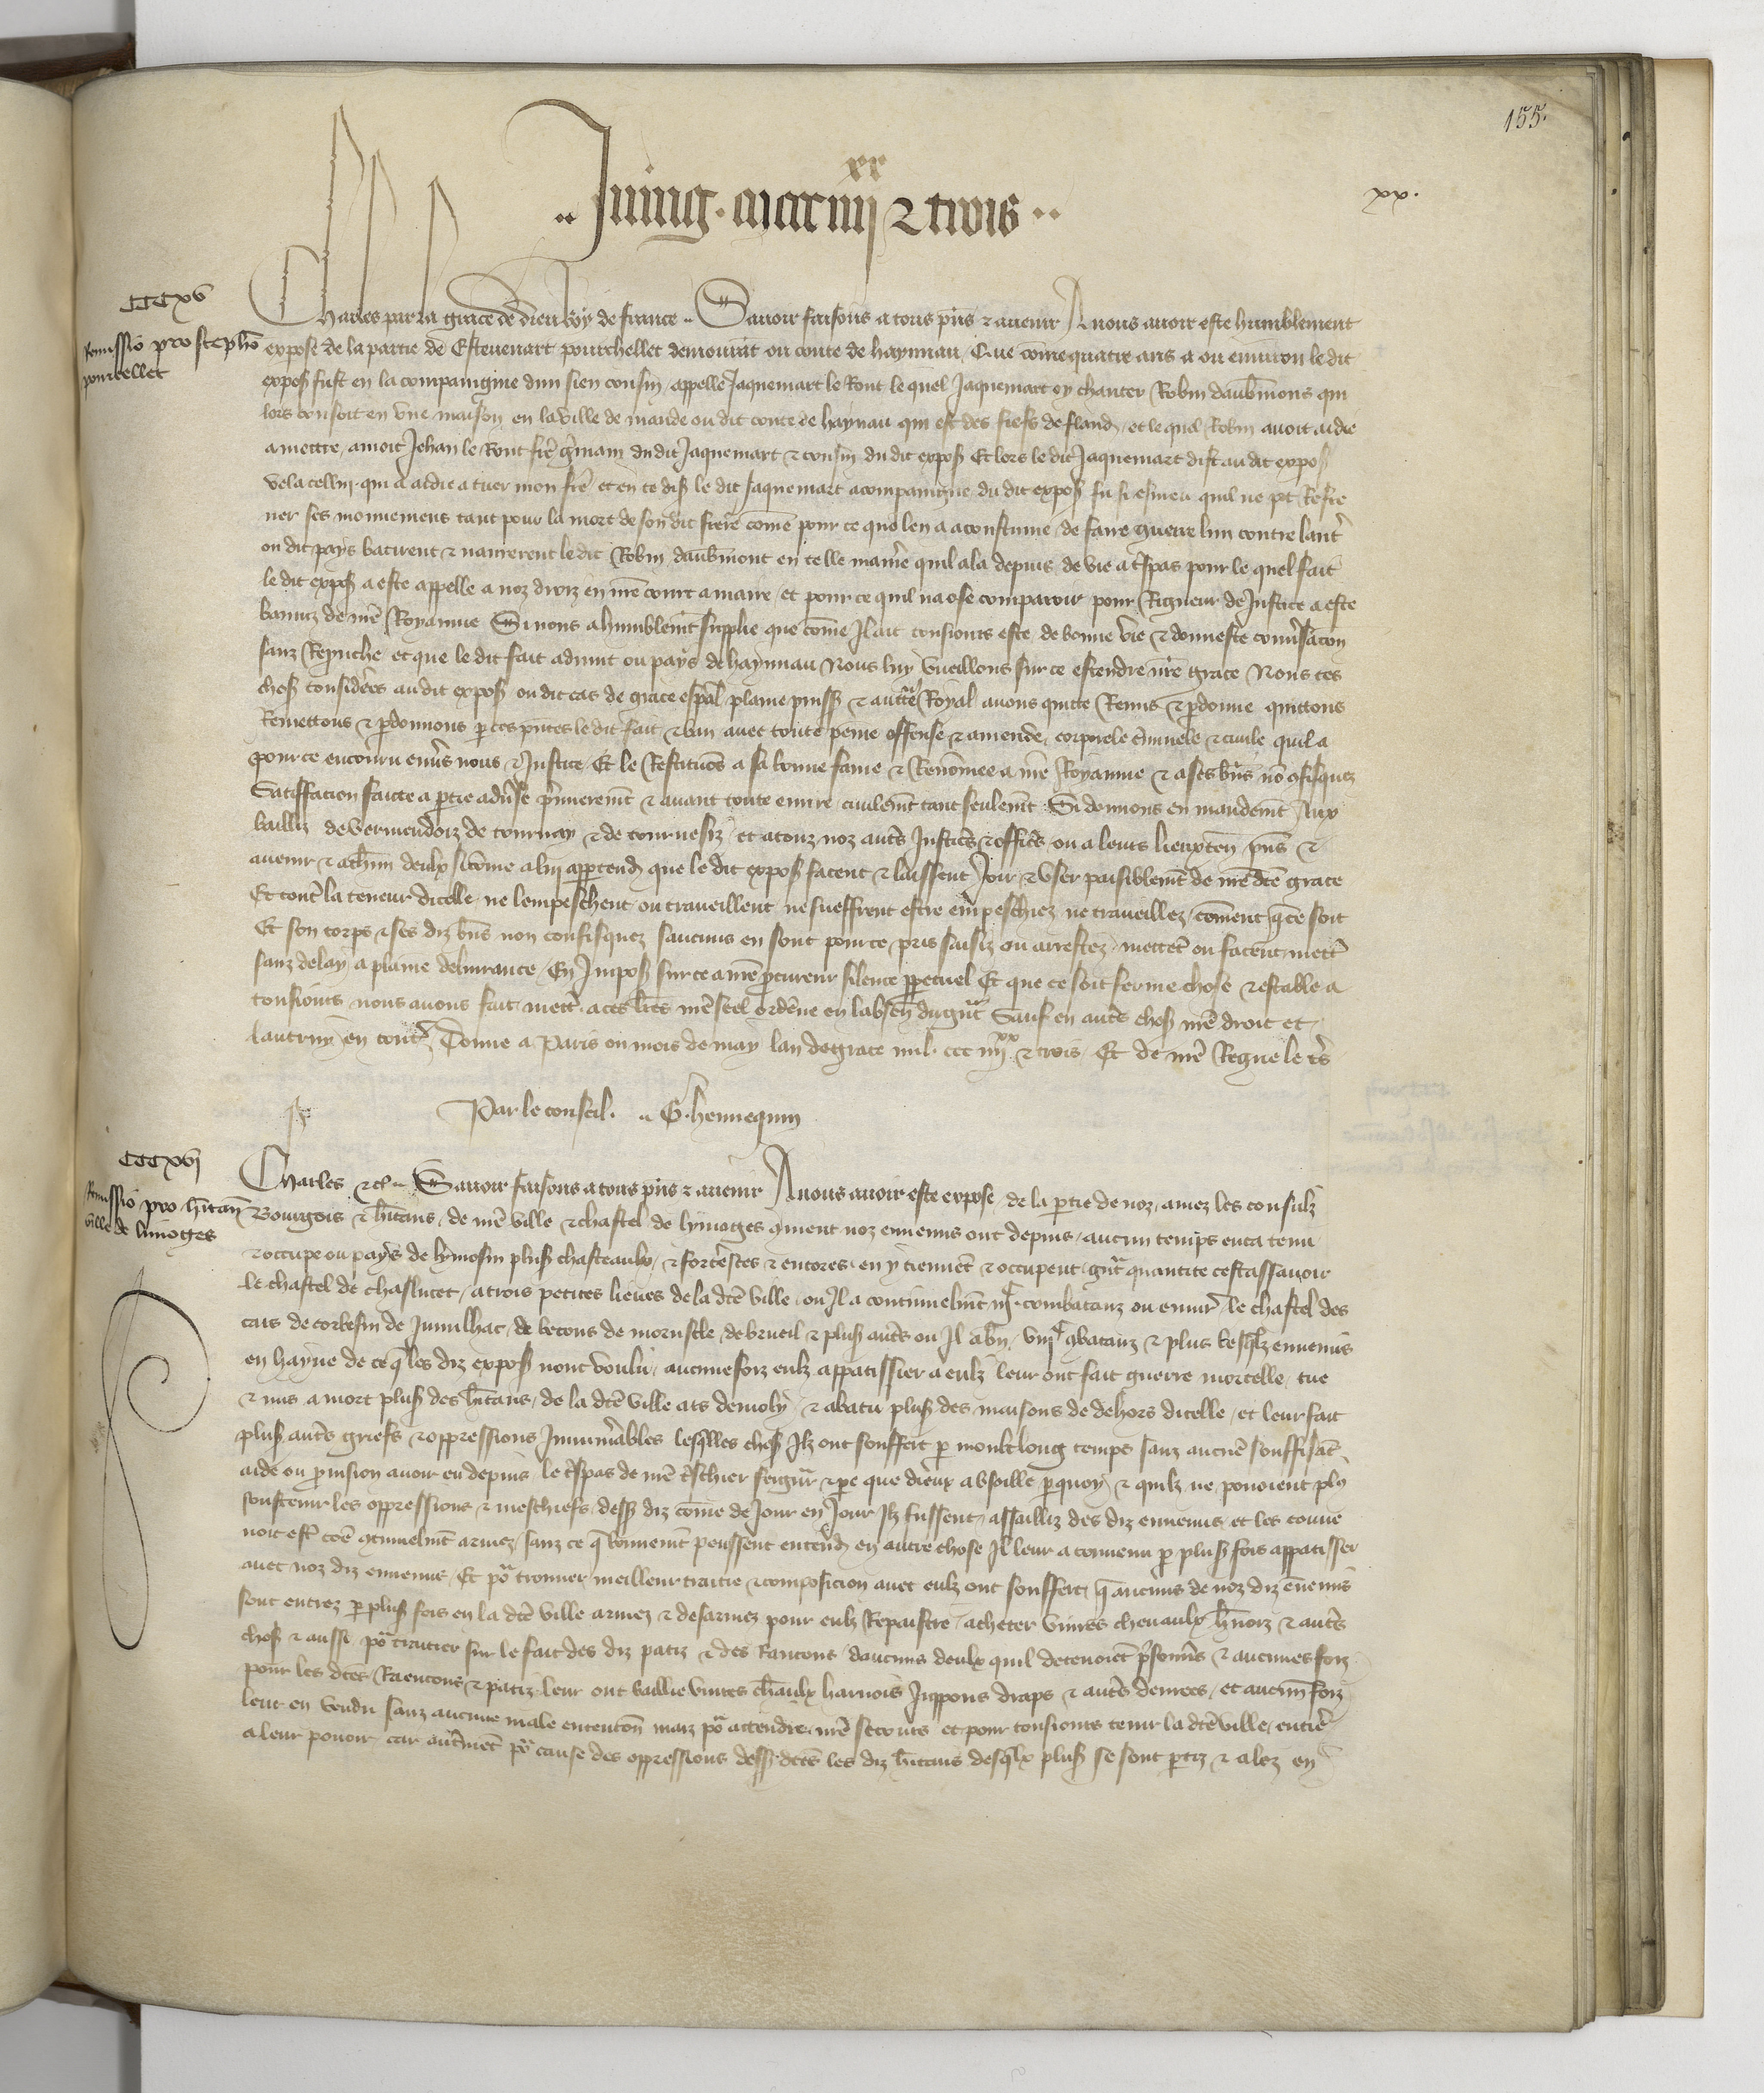 155.
xx.
Juing. m ccc iiii xx & trois
CCCXV
Remissio pro stepho
pourcellet
Charles par la grace de dieu Roy de france. Sauoir faisons a tous pns & auenir A nous auoir este humblement
expose de la partie de Esteuenart pourchellet demourat ou conte de haynnau, Que come quatre ans a ou enuiron le dit
expos fust en la compaingnie dun sien cousin appelle Jaquemart le Ront le quel Jaquemart oy chanter Robin daubmons qui
lors estoit en vne maison en la ville de mande ou dit conte de haynau qui est des fiefs de fland, et le quel Robin auoit aidie
a mettre a mort Jehan le Ront fre gmain du dit Jaquemart & cousin du dit expos Et lors le dit Jaquemart dist au dit expos
vela cellui qui a aidie a tuer mon fre et en ce dis le dit Jaquemart acompaingne du dit expos fu si esmeu quil ne pt Refre
ner ses mouuemens tant pour la mort de son dit frere come pour ce que len a acoustume de faire guerre lun contre laut
ou dit pays batirent & naurerent le dit Robin daubmont en telle maniere quil ala depuis de vie a tspas pour le quel fait
le dit expos a este appelle a noz droiz en nre court a maire, et pour ce quil na ose comparoir pour Rigueur de Justice a este
baniz de nre Royaume Si nous a humblemt supplie que come Il ait tousiours este de bonne vie & donneste conusacon
sanz Repruche et que le dit fait aduint ou pays de haynnau Nous luy vueillons sur ce estendre nre grace Nous ces
chos considerees au dit expos ou dit cas de grace espal plaine puiss & auctte Royal auons quitte Remis & pdonne quittons
Remettons & pdonnons p ces pntes le dit fait & ban auec toute peine offense & amende, corporele criminele & ciuile quil a
pour ce encouru enus nous & Justice Et le Restituons a sa bonne fame & Renomee a nre Royaume & a ses bns no cfisquez
Satiffacion faicte a ptie aduse primeremt & auant toute euure ciuilemt tant seulemt Si donnons en mandemt Aux
bailliz de vermendoiz de tournay & de tournesiz et a touz noz auts Justiciers & officiers ou a leurs lieuxten pns &
auenir & a chun deulx si come a lui appartendra que le dit expos facent & laissent Joir & vser paisiblemt de nre dce grace
Et contre la teneur dicelle ne lempeschent ou traueillent ne sueffrent estre empeschiez ne traueillez coment q ce soit
Et son corps & ses diz bns non confisquez saucuns en sont pour ce pris saisiz ou arrestez mettent ou facent mett
sanz delay a plaine deliurance En Impos sur ce a nre pcureur silence ppetuel Et que ce soit ferme chose & estable a
tousiours nous auons fait mett a ces lres nre scel ordene en labsen du gnt Sauf en auts chos nre droit et
lautruy en tout. Donne a Paris ou mois de may lan de grace mil ccc iiii xx & trois Et de nre Regne le ts
Par le conseil. G. hennequin
CCCXVI
Remissio pro hitan
ville de limoges
Charles &c. Sauoir faisons a tous pns & auenir A nous auoir este expose de la ptie de noz amez les consulz
Bourgois & hitans de nre ville & chastel de lymoges cment noz ennemis ont depuis aucun temps enca tenu
& occupe ou pays de lymosin plus chasteaulx & forteresces & encores en y tiennet & occupent gnt quantite cestassauoir
le chastel de chaslucet a trois petites lieues de la dce ville ou Il a continuelmt iii c combatanz ou enuir le chastel des
cars de corbefin de Jumilhac, de becons de mornscle de brueil & plus auts ou Il a bn viii c cbatanz & plus lesqlz ennemis
en hayne de ce q les diz expos nont voulu aucunefoiz eulx appatissier a eulx leur ont fait guerre mortelle tue
& mis a mort plus des hitans de la dce ville ars demoly & abatu plus des maisons de dehors dicelle, et leur fait
plus auts griefs & oppressions Innumerables lesqlles chos Ilz ont souffert p moult long temps sanz aucune souffisat
aide ou pruision auoir eu depuis le tspas de nre tschier seignr & pere que dieux absoille pquoy & quilz ne pouoient plus
soustenir les oppressions & meschiefs dess diz come de Jour en Jour Ilz fussent assailliz des diz ennemis et les conue
noit estre come ctinuelmt armez, sanz ce q bonnemt peussent entendre en autre chose Il leur a conuenu p plus fois appatisser
auec noz diz ennemis Et por trouuer meilleur traitie & composicion auec eulx ont souffert q aucuns de noz diz ennemis
sont entrez p plus fois en la dce ville armez & desarmez pour eulx Repaistre acheter viures cheuaulx hrnoiz & auts
chos & aussi por traitier sur le fait des diz patiz & des Rancons daucuns deulx quil detenoiet prisonniers & aucunes foiz
pour les dces Raencons & patiz leur ont baillie viures chaulx harnois Juppons draps & auts denrees et aucunes foiz
leur en vendu sanz aucune male entencon maiz por attendre nre secours et pour tousiours tenir la dce ville entiere
a leur pouoir car autremet por cause des oppressions dess dces les diz hitans desqlx plus se sont ptiz & alez en